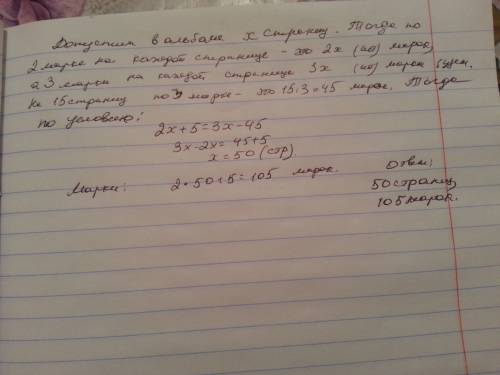 Допустим в альбоме x страниц. Тогда по
2 марке на каждой странице - это 2x (ао) марок,
а 3 марки на каждой странице 3x (ао) марок
На 15 страниц по 3 марке - это 15·3=45 марок. Тогда
по условию:
2x+5=3x-45
3x-2x=45+5
x=50 (стр).
Марки: 2·50+5=105 марок.
Ответ:
50 страниц,
105 марок.